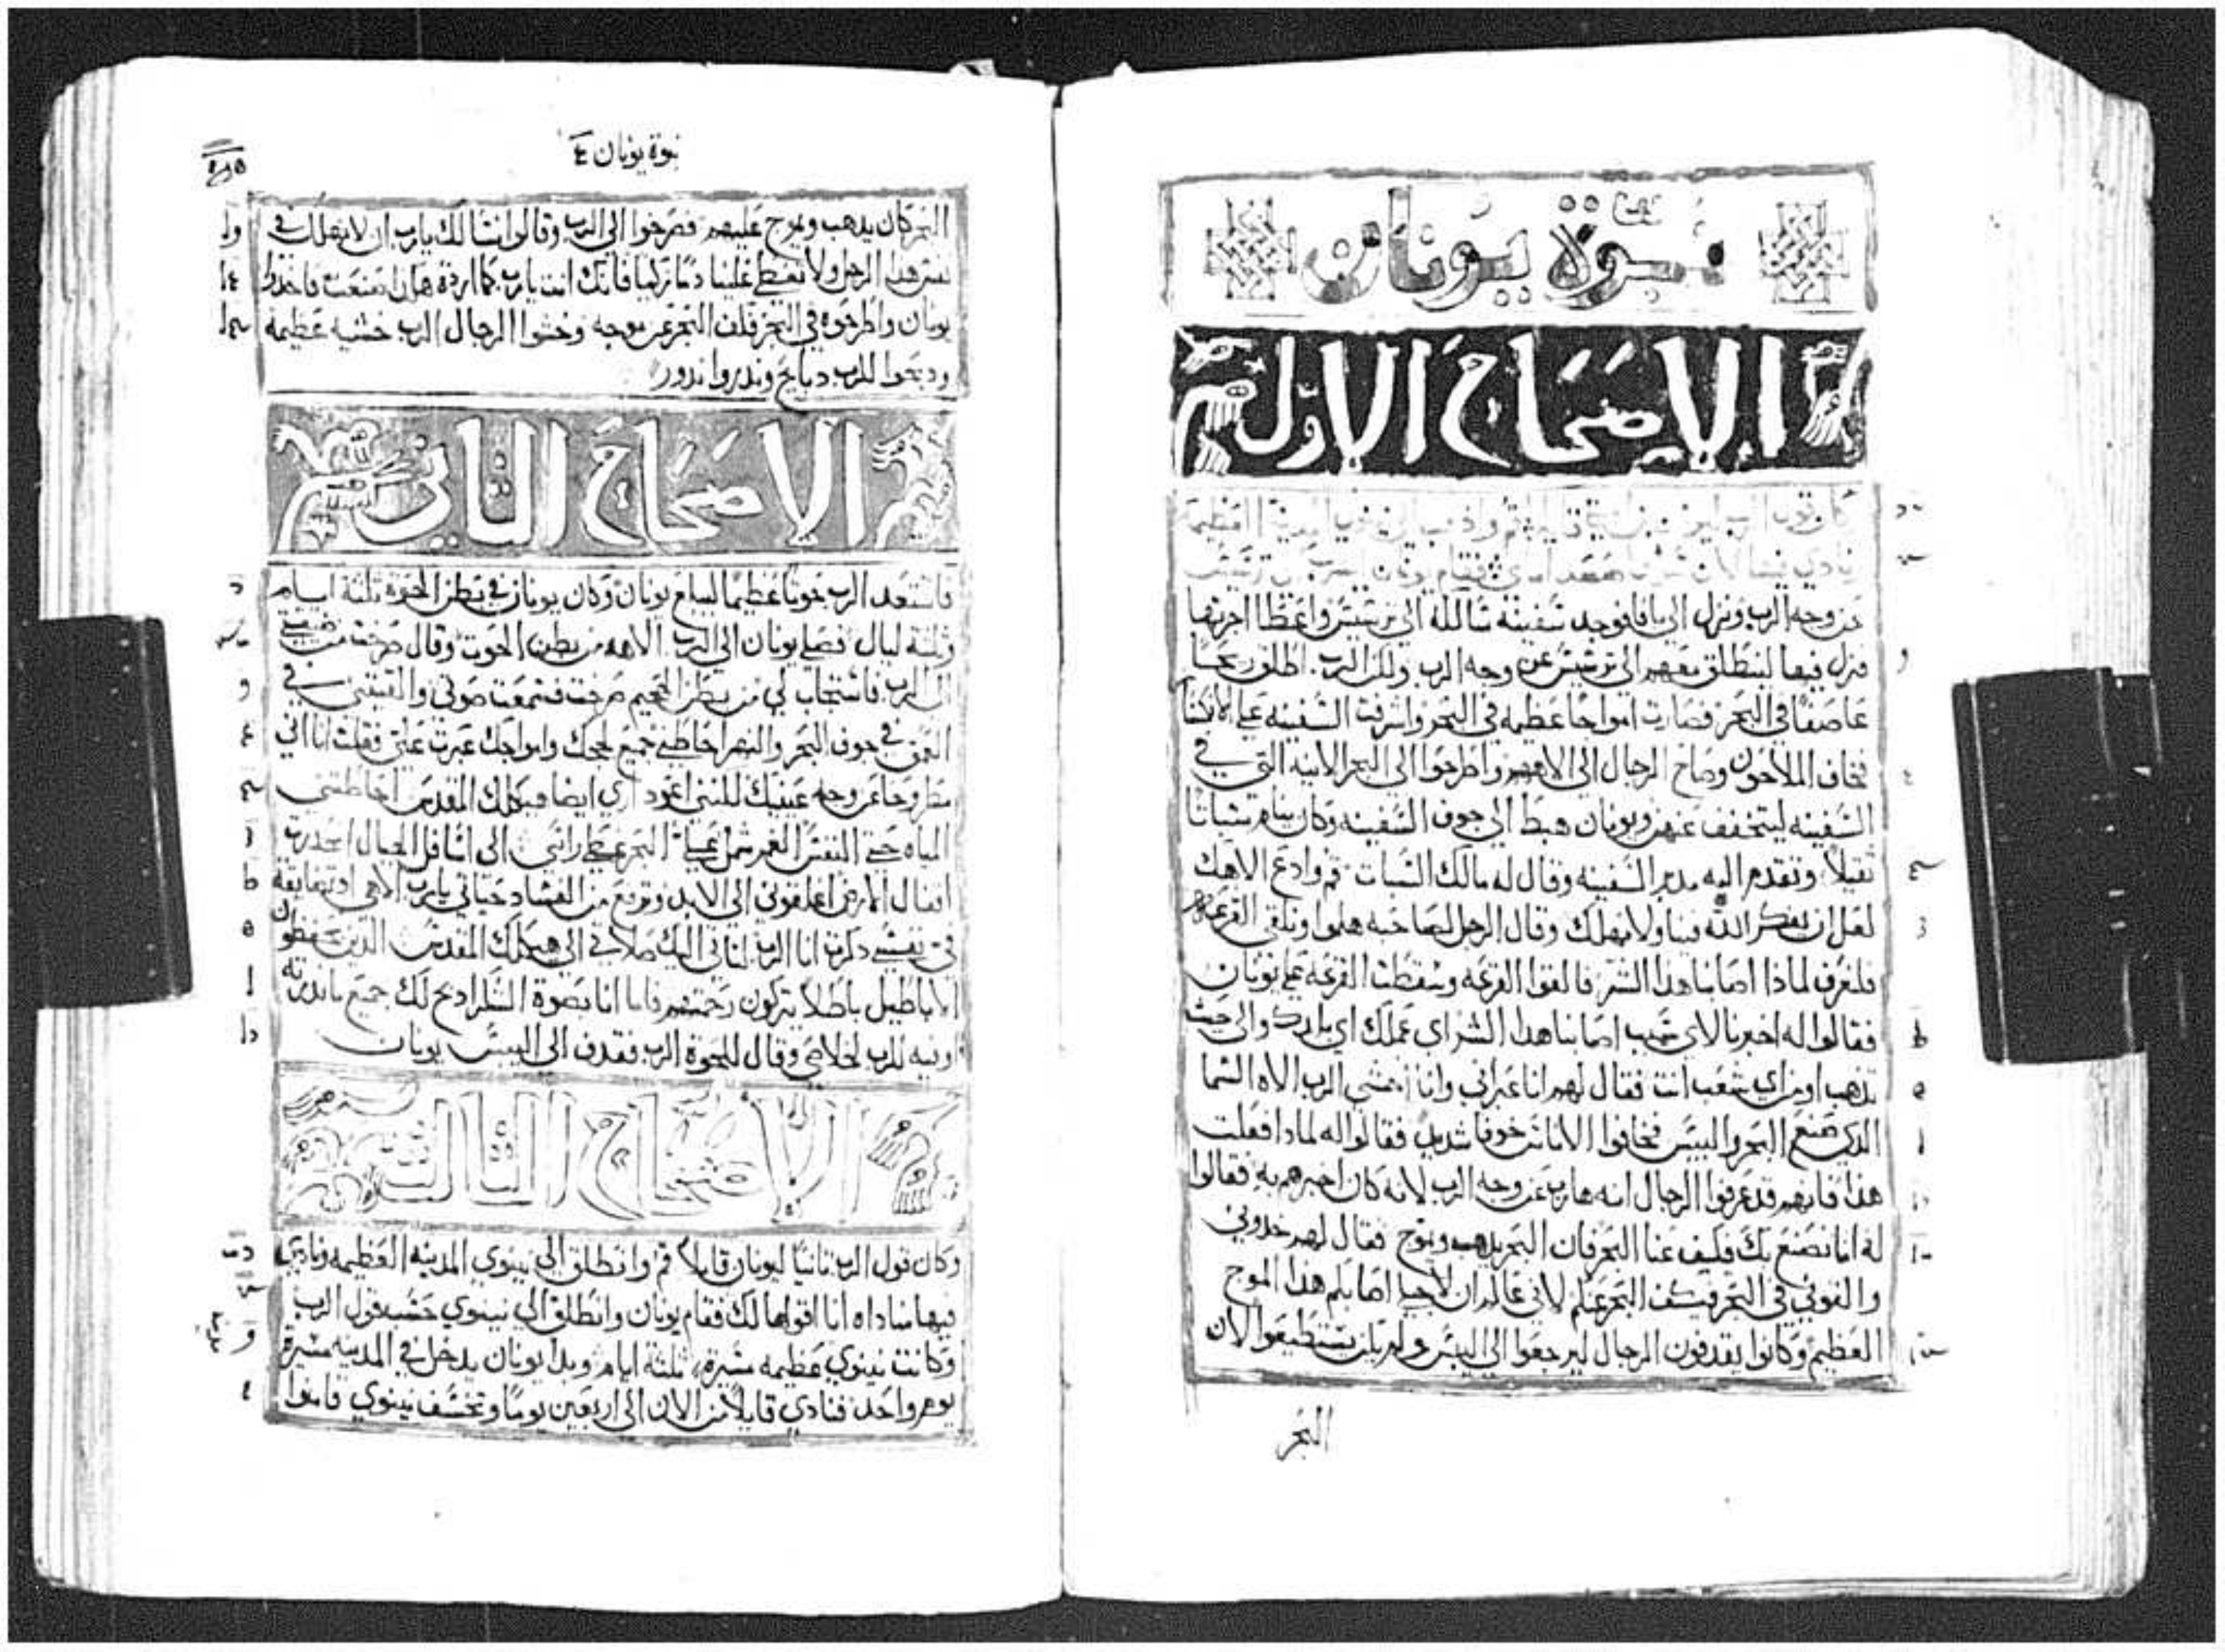 نبوة يونان
الإصحاح الاول
كان قول الرب
عن وجه الرب ونزل الي يافا فوجد سفينه سالكه الي ترسيس واعطا اجرتها
فنزل فيها لينطلق معهم الي ترسيس عن وجه الرب ولكن الرب اطلق ريحا
عاصفا في البحر فصارت امواجا عظيمه في البحر واشرفت السفينه علي الانكسا
فخاف الملاحون وصاح الرجال الي الاههم واطرحوا الي البحر الانيه التي في
السفينه ليتخفف عنهم ويونان هبط الي جوف السفينه وكان ينام سباتا
ثقيلا وتقدم اليه مدبر السفينه وقال له مالك السبات قم وادع الاهك
لعل ان يفكر الله فينا ولا نهلك وقال الرجل لصاحبه هلموا ونلقي القرعه
فلنعرف لماذا اصابنا هدا الشر فالقوا القرعه وسقطت القرعه علي يونان
فقالوا له اخبرنا لاي سبب اصابنا هدا الشر اي عملك اي بلدك والي حيث
تدهب او من اي شعب انت فقال لهم انا عبراني وانا اخشي الرب الاه السما
الدي صنع البحر واليبس فخافوا الاناس خوفا شديد فقالوا له لمادا فعلت
هذا فانهم قد عرفوا الرجال انه هارب عن وجه الرب لانه كان اخبرهم به فقالوا
له انا نصنع بك فيكف عنا البحر فان البحر يدهب ويموج فقال لهم خدوني
والقوني في البحر فيكف البحر عنكم لاني عالم ان لاجلي اصابكم هذا الموج
العظيم وكانوا يقدفون الرجال ليرجعوا الي اليبس ولم يكن يستطيعوا لان
البحر
نبوة يونان ٤
البحر كان يدهب ويموج عليهم فصرخوا الي الرب وقالوا نسالك يارب ان لا نهلك في
نفس هدا الرجل ولا تعطي علينا دما زكيا فانك انت يارب كما اردة هكدا صنعت فاخدوا
يونان واطرحوه في البحر فكف البحر عن موجه وخشوا الرجال الرب خشيه عظيمه
ودبحوا للرب دبايح وندروا ندور
الاصحاح الثاني
فاستعد الرب حوتا عظيما ليبلع يونان وكان يونان في بطن الحوة ثلثة ايام
وثلثة ليال فصلي يونان الي الرب الاهه من بطن الحوت وقال صرخت من ضيقتي
الي الرب فاستجاب لي من بطن الجحيم صرخت فسمعت صوتي والقيتني في
العمق في جوف البحر والنهر احاط بي جميع لججك وامواجك عبرت علي فقلت انا اني
مطروحا عن وجه عينيك لكنني اعود اري ايضا هيكلك المقدس احاطتني
المياه حتي النفس الغمر شملني البحر غطي راسي الي اسافل الجبال انحدرت
اقفال الارض اغلقوني الي الابد وترفع من الفساد حياتي يارب الاهي اد تضايقة
في نفسي دكرت انا الرب لتاتي اليك صلاتي الي هيكلك المقدس الدين يحفظون
الاباطيل باطلا يتركون رحمتهم فاما انا بصوة الشكر ادبح لك جميع ما ندرته
اوفيه للرب لخلاصي وقال للحوة الرب فقدف الي اليبس يونان
الاصحاح الثالث
وكان قول الرب ثانيا ليونان قايلا قم وانطلق الي نينوي المدينه العظيمه وناد
فيها مناداه انا اقولها لك فقام يونان وانطلق الي نينوي حسب قول الرب
وكانت نينوي عظيمه مسيرة ثلثة ايام وبدا يونان يدخل في المدينه مسيرة
يوم واحد فنادي قايلا من الان الي اربعين يوما وتخسف نينوي فامنوا